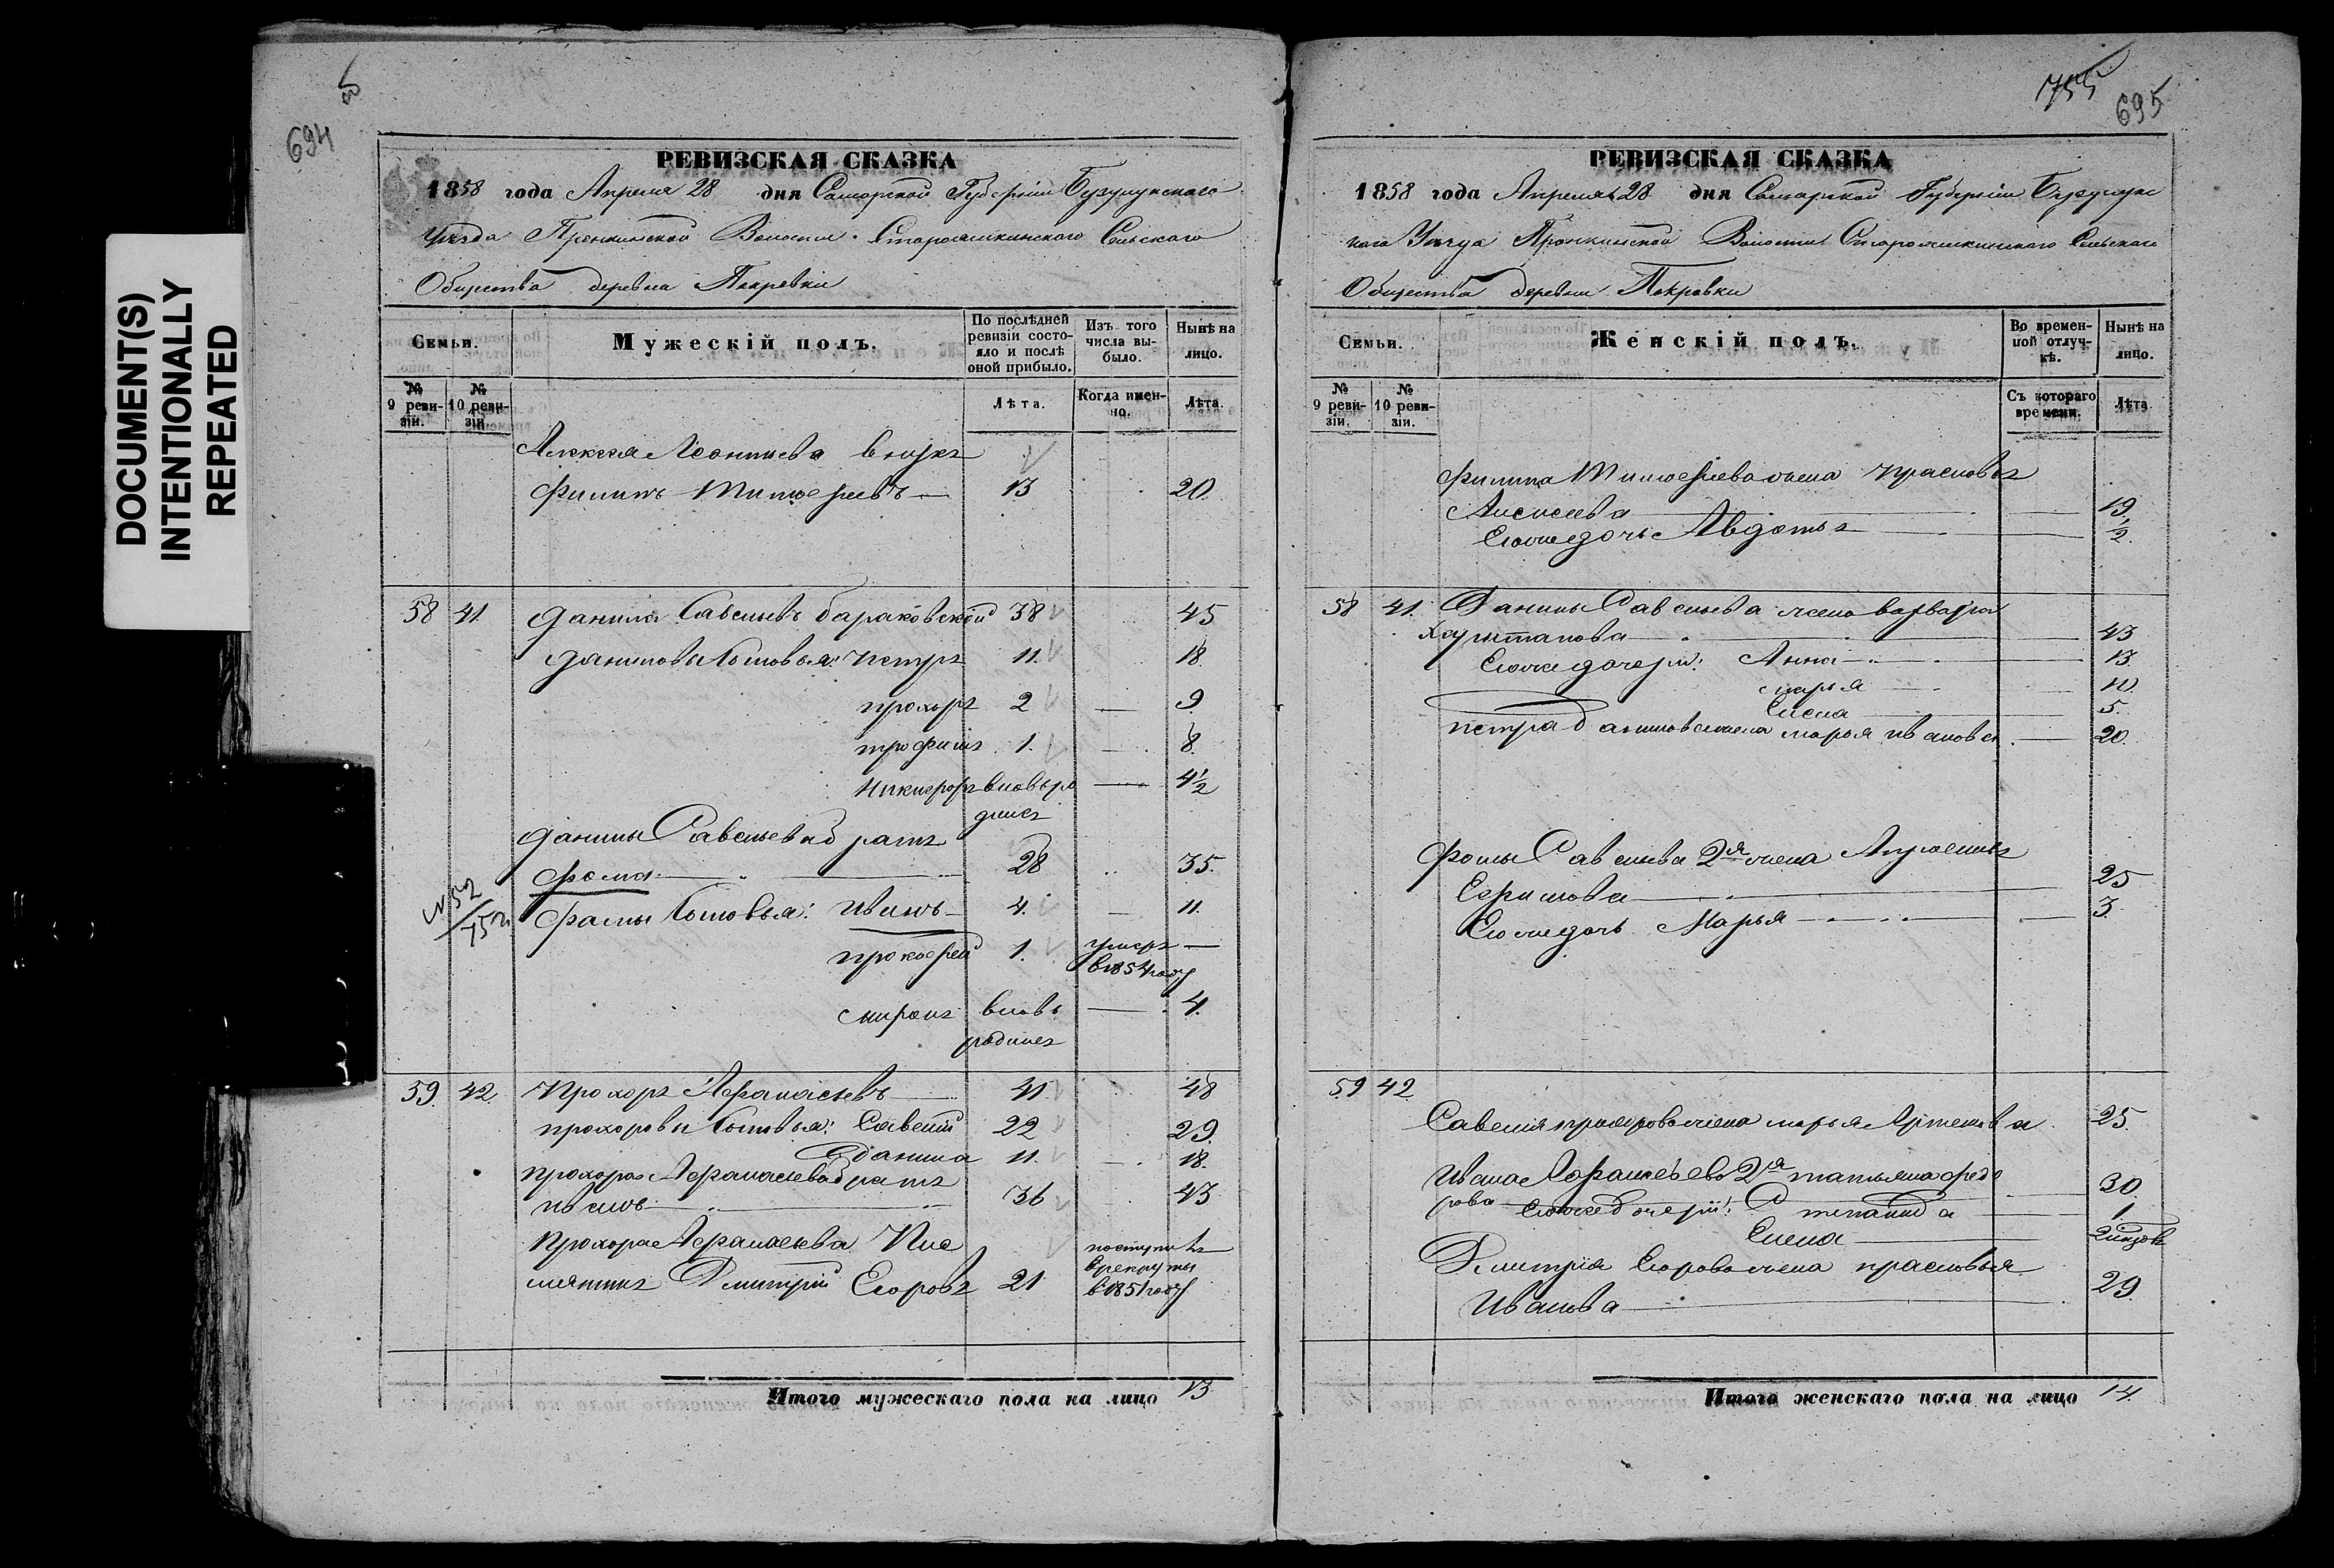 DOCUMENT(S)
INTENTIONALLY
REPEATED
694
РЕВИЗСКАЯ СКАЗКА
1858 года Апреля 28 дня Самарской Губерніи Бузулукскаго
Уезда Пронкинской Волости Староашкинскаго Сельскаго
Общества деревни Покровки
Семьи.
Мужескій полъ.
По послѣдней ревизіи состояло и послѣ оной прибыло.
Изъ того числа выбыло.
Нынѣ на лицо.
№ 9 ревизіи.
№ 10 ревизіи.
Лѣта.
Когда именно.
Лѣта.
Алексея Леонтьева внукъ
Филипъ Тимофеевъ 13 20
58 41 Данила Савельевъ бараковской 38 45
Даниловы Сыновья: Петръ 11. 18.
прохоръ 2 — 9.
трофимъ 1. — 8.
Никифоръ вновь ро — 4½
дился
Данилы Савельева братъ
Фома 28 35.
№ 52
Фомы Сыновья: Иванъ 4. — 11.
прокофей 1. умеръ —
в 1854 году
миронъ вновь — 4.
родился
59. 42. Прохоръ Афанасьевъ 41 48
прохоровы Сыновья: Савелий 22 29.
Данила 11. 18.
прохора Афанасьева братъ
иванъ 36 43
Прохора Афанасьева Пле
мянникъ Дмитрий Егоровъ 21 поступилъ
в рекруты
в 1851 году
Итого мужескаго пола на лицо 13
755
695
РЕВИЗСКАЯ СКАЗКА
1858 года Апреля 28 дня Самарской Губерніи Бузулукс
каго Уезда Пронкинской Волости Староашкинскаго Сельскаго
Общества деревни Покровки
Семьи.
Женскій полъ.
Во временной отлучкѣ.
Нынѣ на лицо.
№ 9 ревизіи.
№ 10 ревизіи.
Съ котораго времени.
Лѣта.
Филипа Тимофеева жена прасковья
Алексеева 19.
Ево же дочь Авдотья ½
58 41. Данилы Савельева жена варвара
Хаританова 43
Ево же дочери: Анна 13.
марья 10.
Елена 5.
петра данилова жена марья ивановa 20.
Фомы Савельева 2я жена Апросинья
Ефимова 25
Ево же дочь Марья 3.
59 42
Савелия прохорова жена марья Артемова 25.
Ивана Афанасьева 2я татьяна федо
рова 30.
Ево же дочери: Степанида 1.
Елена 2 недель
Дмитрия Егорова жена прасковья
Иванова 29.
Итого женскаго пола на лицо 14.